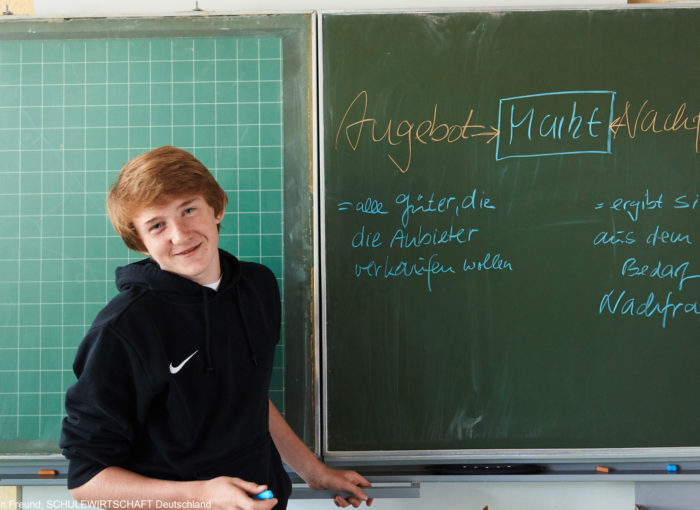 Angebot → Markt ← Nachf
= alle Güter, die
die Anbieter
verkaufen wollen
= ergibt si
aus dem
Bedarf
Nachfra
n Freund, SCHULEWIRTSCHAFT Deutschland